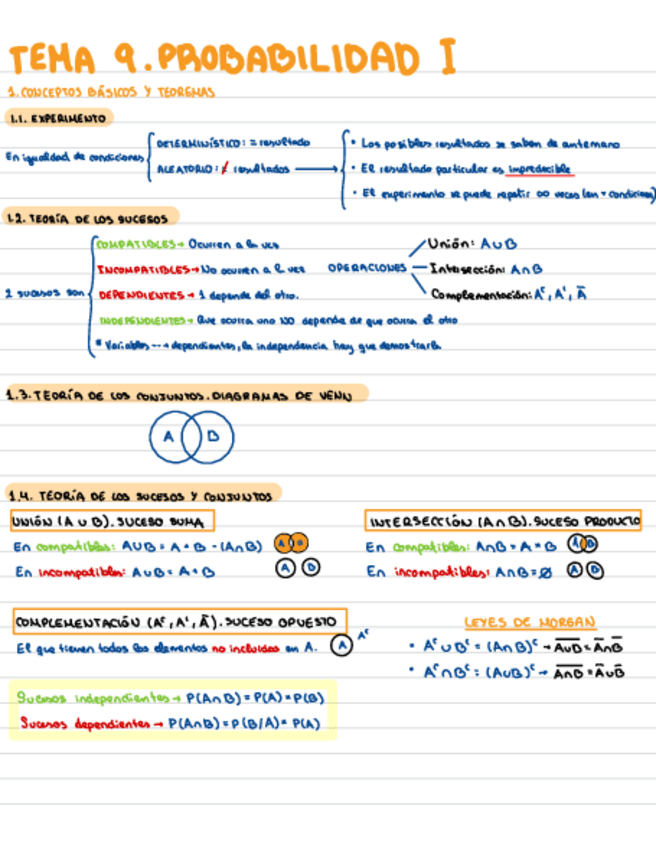 TEMA 9. PROBABILIDAD I
1. CONCEPTOS BÁSICOS Y TEOREMAS
1.1. EXPERIMENTO
En igualdad de condiciones
DETERMINÍSTICO: = resultado
ALEATORIO: ≠ resultados →
• Los posibles resultados se saben de antemano
• El resultado particular es impredecible
• El experimento se puede repetir ∞ veces (en = condiciones)
1.2. TEORÍA DE LOS SUCESOS
2 sucesos son
COMPATIBLES → Ocurren a la vez
INCOMPATIBLES → No ocurren a la vez
DEPENDIENTES → 1 depende del otro.
INDEPENDIENTES → Que ocurra uno NO depende de que ocurra el otro
* Variables --→ dependientes, la independencia hay que demostrarla.
OPERACIONES
Unión: A∪B
Intersección: A∩B
Complementación: Aᶜ, A', Ā
1.3. TEORÍA DE LOS CONJUNTOS. DIAGRAMAS DE VENN
A B
1.4. TEORÍA DE LOS SUCESOS Y CONJUNTOS
UNIÓN (A ∪ B). SUCESO SUMA
En compatibles: A∪B = A + B - (A∩B) A B
En incompatibles: A∪B = A + B A B
INTERSECCIÓN (A∩B). SUCESO PRODUCTO
En compatibles: A∩B = A * B A B
En incompatibles: A∩B = Ø A B
COMPLEMENTACIÓN (Aᶜ, A', Ā). SUCESO OPUESTO
El que tienen todos los elementos no incluidos en A. A Aᶜ
LEYES DE MORGAN
• Aᶜ ∪ Bᶜ = (A∩B)ᶜ → A̅∪̅B̅ = Ā∩B̅
• Aᶜ ∩ Bᶜ = (A∪B)ᶜ → A̅∩̅B̅ = Ā∪B̅
Sucesos independientes → P(A∩B) = P(A) * P(B)
Sucesos dependientes → P(A∩B) = P(B/A) * P(A)